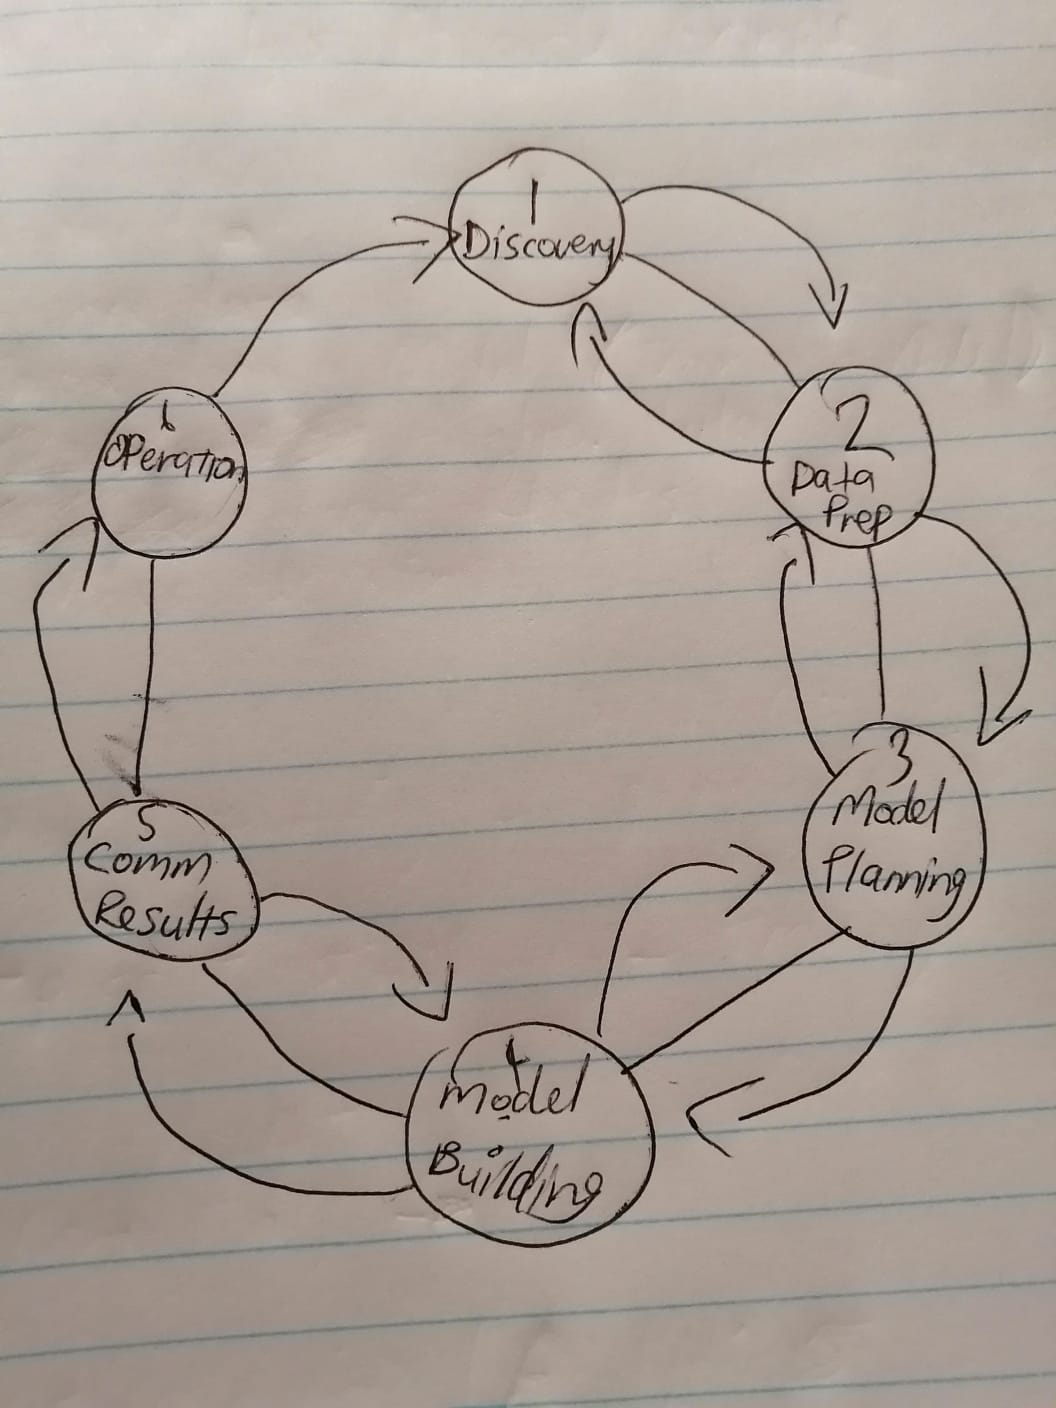 1
Discovery
2
Data
Prep
3
Model
Planning
Model
Building
5
Comm
Results
6
Operation